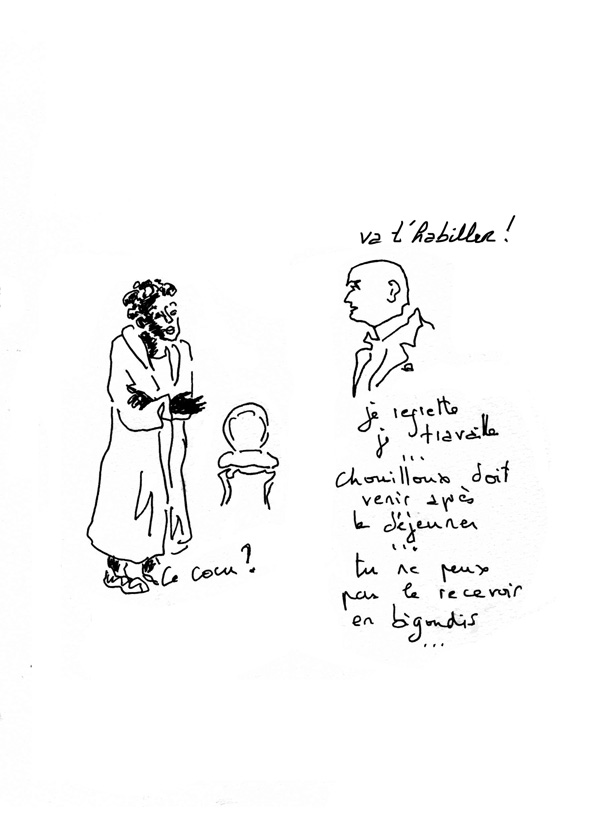 va t'habiller !
je regrette
je travaille
...
chouilloux doit
venir après
le déjeuner
...
tu ne peux
pas le recevoir
en bigoudis
...
Le cocu ?